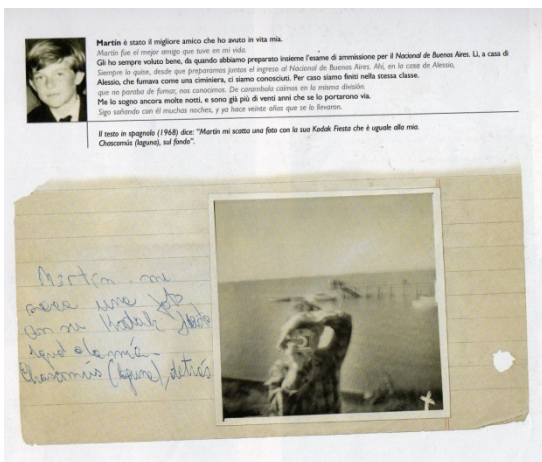 Martín è stato il migliore amico che ho avuto in vita mia.
Martín fue el mejor amigo que tuve en mi vida.
Gli ho sempre voluto bene, da quando abbiamo preparato insieme l'esame di ammissione per il Nacional de Buenos Aires. Lì, a casa di
Siempre lo quise, desde que preparamos juntos el ingreso al Nacional de Buenos Aires. Ahí, en la casa de Alessio,
Alessio, che fumava come una ciminiera, ci siamo conosciuti. Per caso siamo finiti nella stessa classe.
que no paraba de fumar, nos conocimos. De carambola caímos en la misma división.
Me lo sogno ancora molte notti, e sono già più di venti anni che se lo portarono via.
Sigo soñando con él muchas noches, y ya hace veinte años que se lo llevaron.
Il testo in spagnolo (1968) dice: "Martín mi scatta una foto con la sua Kodak Fiesta che è uguale alla mia.
Chascomús (laguna), sul fondo".
Martín, me
saca una foto
con su Kodak fiesta
igual a la mía.
Chascomús (laguna), detrás